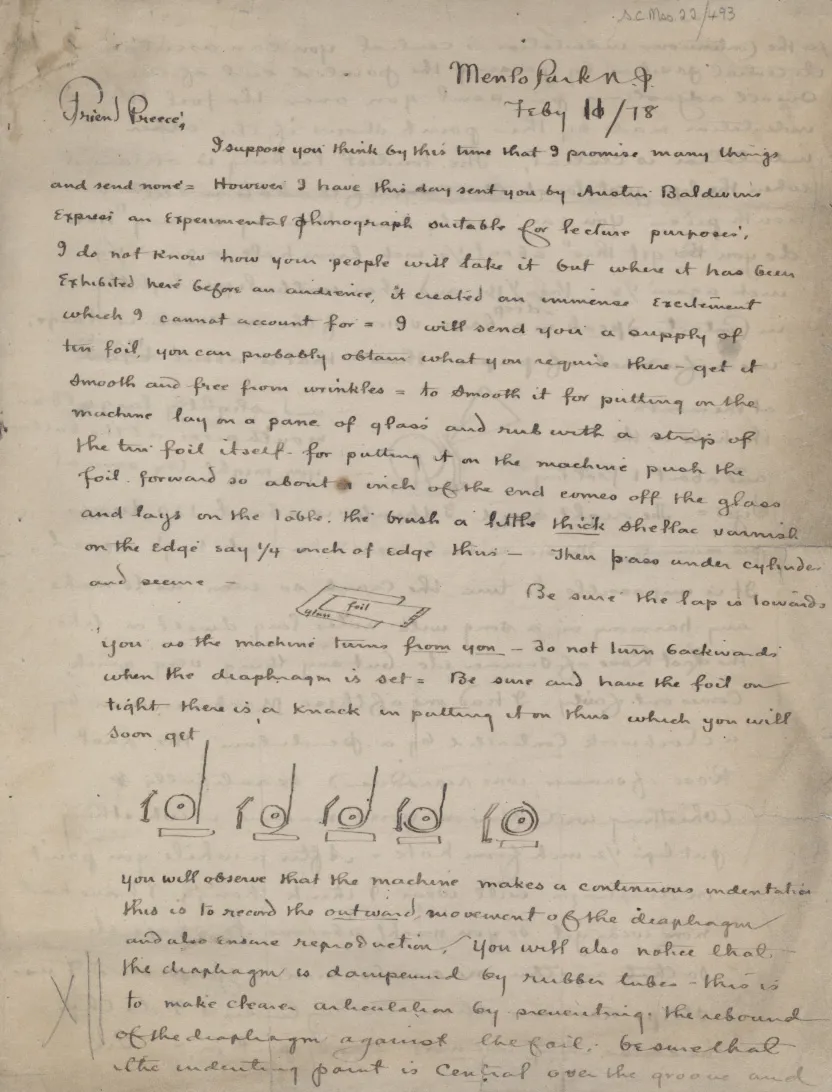 S.C. Mss. 22/493
Menlo Park N.J.
Feby 11/78
Friend Preece,
I suppose you think by this time that I promise many things
and send none = However I have this day sent you by Austin Baldwins
Express an Experimental phonograph suitable for lecture purposes,
I do not know how your people will take it but where it has been
Exhibited here before an audience, it created an immense Excitement
which I cannot account for = I will send you a supply of
tin foil, you can probably obtain what you require there - get it
smooth and free from wrinkles = to smooth it for putting on the
machine lay on a pane of glass and rub with a strip of
the tin foil itself - for putting it on the machine push the
foil forward so about inch of the end comes off the glass
and lays on the table. the brush a little thick shellac varnish
on the Edge say 1/4 inch of Edge thus - Then pass under cylinder
and secure -
foil
glass
Be sure the lap is towards
you as the machine turns from you - do not turn backwards
when the diaphragm is set = Be sure and have the foil on
tight there is a knack in putting it on thus which you will
soon get
you will observe that the machine makes a continuous indentation
this is to record the outward movement of the diaphragm
and also Ensure reproduction, You will also notice that
the diaphragm is dampened by rubber tubes - this is
to make clearer articulation by preventing the rebound
of the diaphragm against the foil. be sure that
the indenting point is Central over the groove and